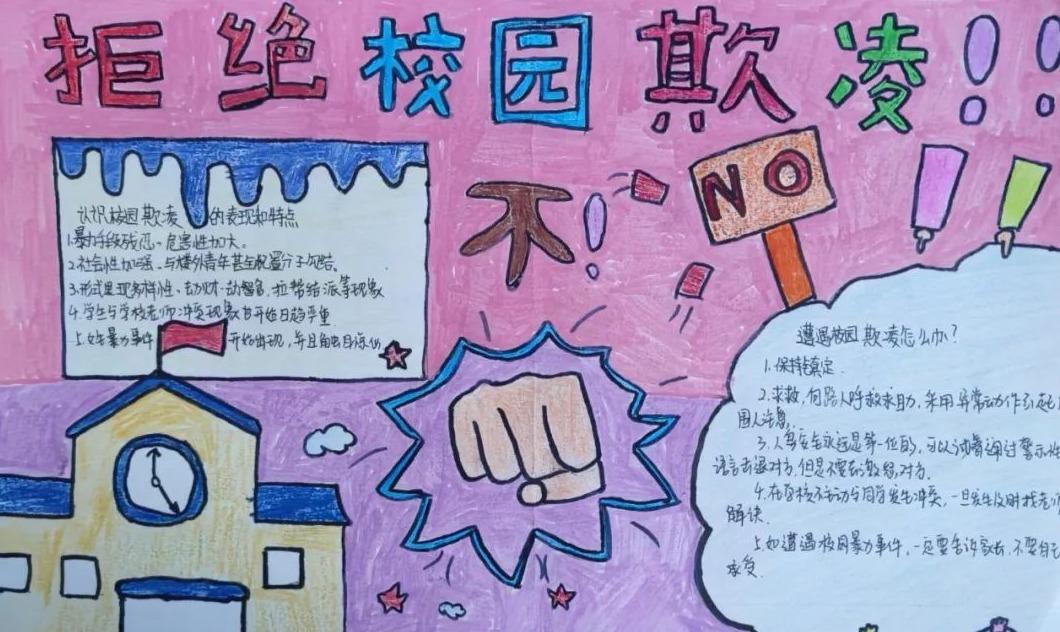 拒绝校园欺凌!!
不!
NO
认识校园欺凌的表现和特点
1.暴力手段残忍、危害性加大。
2.社会性加强、与校外青年甚至犯罪分子勾结。
3.形式呈现多样性、动财动智、拉帮结派等现象
4.学生与学校老师冲突现象日开始日趋严重
5.女生暴力事件开始出现,并且
遭遇校园欺凌怎么办?
1.保持镇定.
2.求救,向路人呼救求助,采用异常动作引起
围人注意.
3.人身安全永远是第一位的,可以试着通过警示性
语言击退对方,但是不要去激怒对方.
4.在学校不主动与同学发生冲突,一旦发生及时找老师
解决.
5.如遭遇校园暴力事件,一定要告诉家长,不要自己
承受.